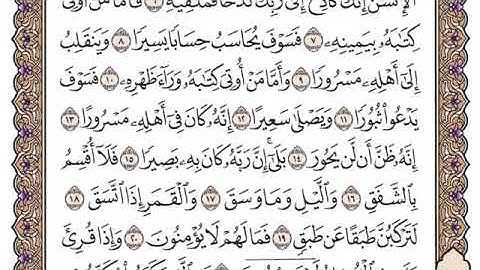 الْإِنسَٰنُ إِنَّكَ كَادِحٌ إِلَىٰ رَبِّكَ كَدْحًا فَمُلَٰقِيهِ ٦ فَأَمَّا مَنْ أُوتِىَ
كِتَٰبَهُۥ بِيَمِينِهِۦ ٧ فَسَوْفَ يُحَاسَبُ حِسَابًا يَسِيرًا ٨ وَيَنقَلِبُ
إِلَىٰٓ أَهْلِهِۦ مَسْرُورًا ٩ وَأَمَّا مَنْ أُوتِىَ كِتَٰبَهُۥ وَرَآءَ ظَهْرِهِۦ ١٠ فَسَوْفَ
يَدْعُوا۟ ثُبُورًا ١١ وَيَصْلَىٰ سَعِيرًا ١٢ إِنَّهُۥ كَانَ فِىٓ أَهْلِهِۦ مَسْرُورًا ١٣
إِنَّهُۥ ظَنَّ أَن لَّن يَحُورَ ١٤ بَلَىٰٓ إِنَّ رَبَّهُۥ كَانَ بِهِۦ بَصِيرًا ١٥ فَلَآ أُقْسِمُ
بِٱلشَّفَقِ ١٦ وَٱلَّيْلِ وَمَا وَسَقَ ١٧ وَٱلْقَمَرِ إِذَا ٱتَّسَقَ ١٨
لَتَرْكَبُنَّ طَبَقًا عَن طَبَقٍ ١٩ فَمَا لَهُمْ لَا يُؤْمِنُونَ ٢٠ وَإِذَا قُرِئَ